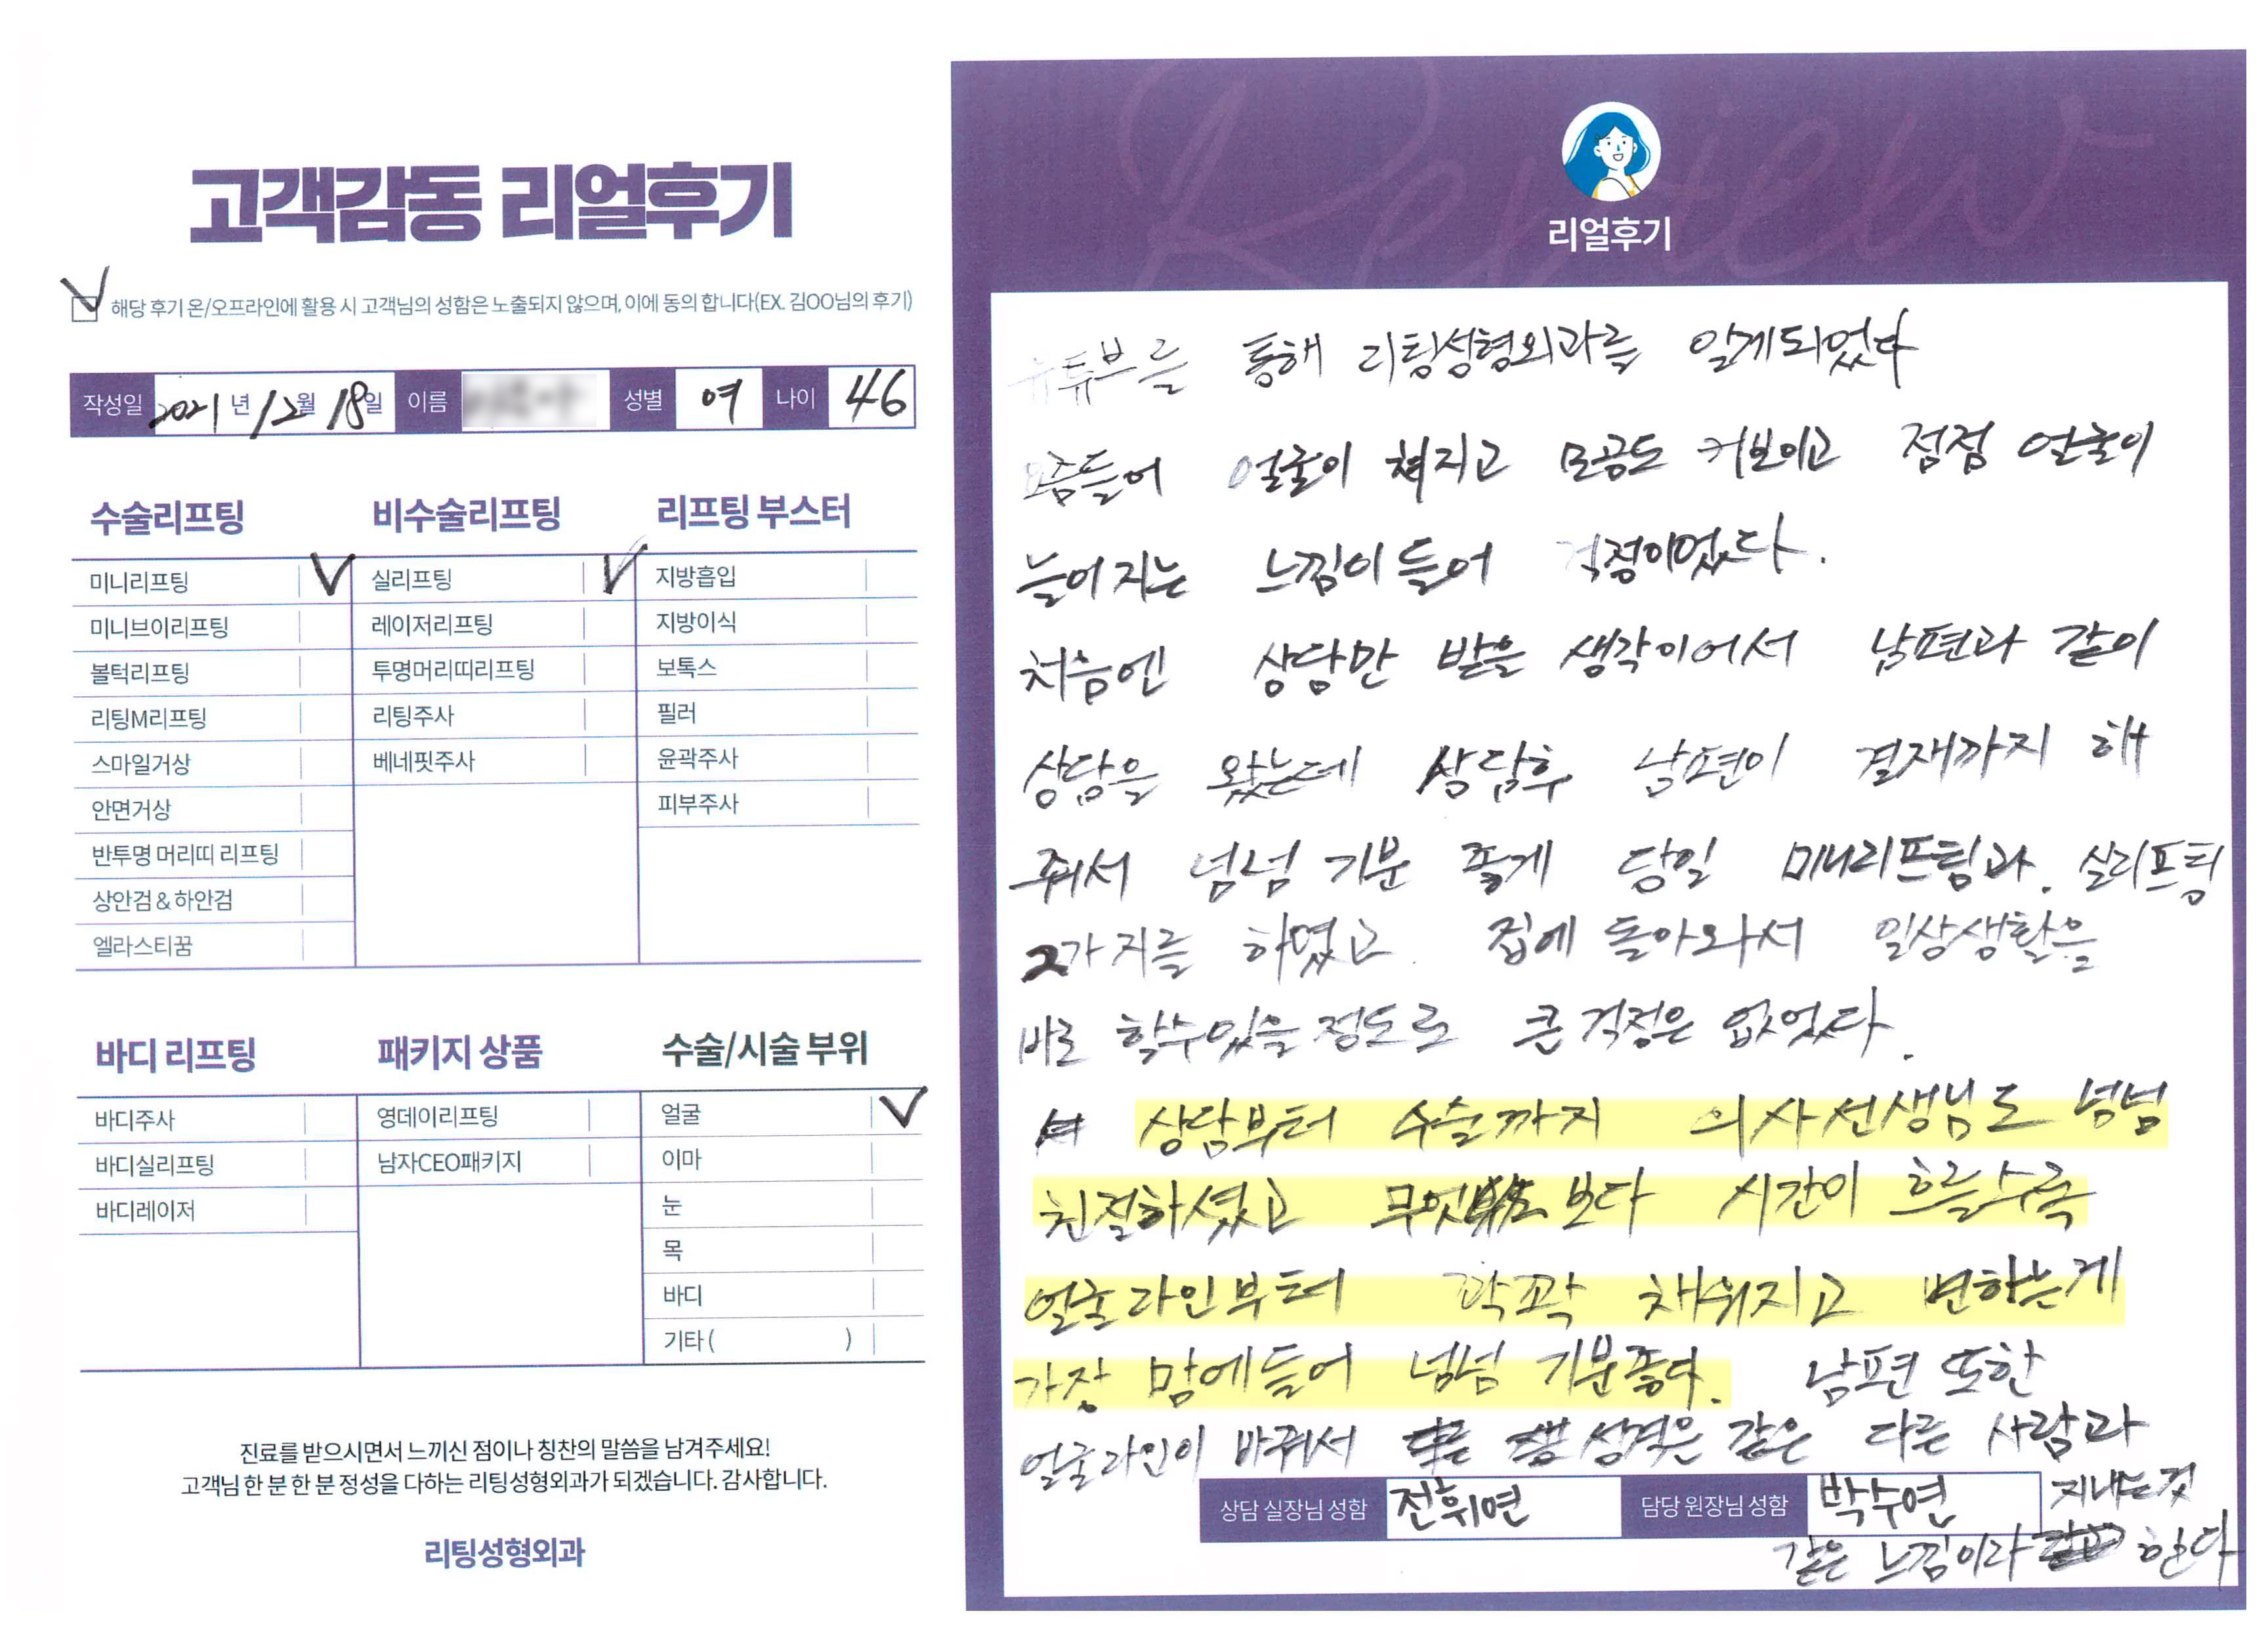 고객감동 리얼후기
해당 후기 온/오프라인에 활용 시 고객님의 성함은 노출되지 않으며, 이에 동의 합니다(EX. 김OO님의 후기)
작성일 2021년 12월 18일 이름 성별 여 나이 46
수술리프팅
미니리프팅 ✓
미니브이리프팅
볼턱리프팅
리팅M리프팅
스마일거상
안면거상
반투명 머리띠 리프팅
상안검 & 하안검
엘라스티꿈
비수술리프팅
실리프팅 ✓
레이저리프팅
투명머리띠리프팅
리팅주사
베네핏주사
리프팅 부스터
지방흡입
지방이식
보톡스
필러
윤곽주사
피부주사
바디 리프팅
바디주사
바디실리프팅
바디레이저
패키지 상품
영데이리프팅
남자CEO패키지
수술/시술 부위
얼굴 ✓
이마
눈
목
바디
기타 ( )
진료를 받으시면서 느끼신 점이나 칭찬의 말씀을 남겨주세요!
고객님 한 분 한 분 정성을 다하는 리팅성형외과가 되겠습니다. 감사합니다.
리팅성형외과
Review
리얼후기
유튜브를 통해 리팅성형외과를 알게되었다
요즘들어 얼굴이 쳐지고 모공도 커보이고 점점 얼굴이
늘어지는 느낌이 들어 걱정이었다.
처음엔 상담만 받을 생각이어서 남편과 같이
상담을 왔는데 상담후 남편이 결재까지 해
줘서 넘넘 기분 좋게 당일 미니리프팅과. 실리프팅
2가지를 하였고 집에 돌아와서 일상생활을
바로 할수있을 정도로 큰 걱정은 없었다.
상담부터 수술까지 의사선생님도 넘넘
친절하셨고 무엇보다 시간이 흐를수록
얼굴라인부터 꽉꽉 채워지고 변하는게
가장 맘에들어 넘넘 기분좋다. 남편 또한
얼굴라인이 바뀌서 성격은 같은 다른 사람과
지내는것
같은 느낌이라 한다
상담 실장님 성함 전휘연 담당 원장님 성함 박수연